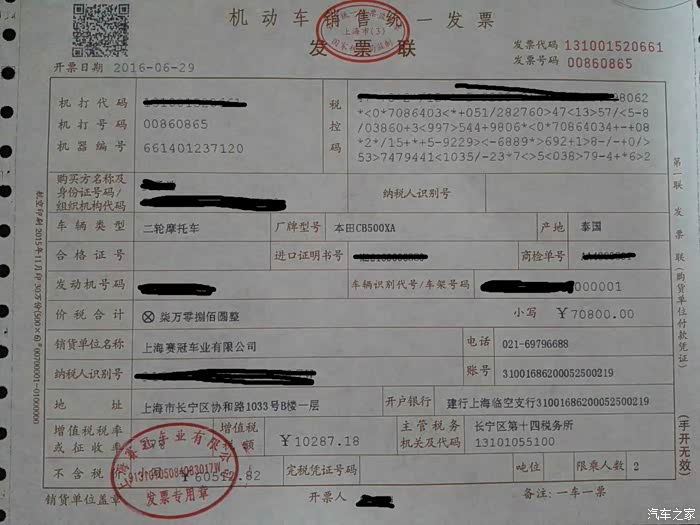 机动车销售统一发票
发票联
上海市(3)
开票日期 2016-06-29
发票代码 131001520661
发票号码 00860865
机打代码
机打号码 00860865
机器编号 661401237120
税控码
8062
*<0*7086403<*+051/282760>47<13>57/<5-8
/03860+3<997>544+9806*<0*70864034+-+08
*2*/15+*+5-9229><-6889*>692+1>8-/-+0/>
53>7479441<1035/-23+7<>5<038>79-4+*6>2
购买方名称及
身份证号码/
组织机构代码
纳税人识别号
车辆类型 二轮摩托车 厂牌型号 本田CB500XA 产地 泰国
合格证号 进口证明书号 商检单号
发动机号码 车辆识别代号/车架号码 000001
价税合计 ⊗柒万零捌佰圆整 小写 ￥70800.00
销货单位名称 上海赛冠车业有限公司 电话 021-69796688
纳税人识别号 账号 31001686200052500219
地址 上海市长宁区协和路1033号B楼一层 开户银行 建行上海临空支行31001686200052500219
增值税税率
或征收率
增值税
￥10287.18
主管税务
机关及代码
长宁区第十四税务所
13101055100
不含税 ￥60512.82 完税凭证号码 吨位 限乘人数 2
销货单位盖章 开票人 备注：一车一票
发票专用章
第一联 发票联(购货单位付款凭证)
(手开无效)
汽车之家